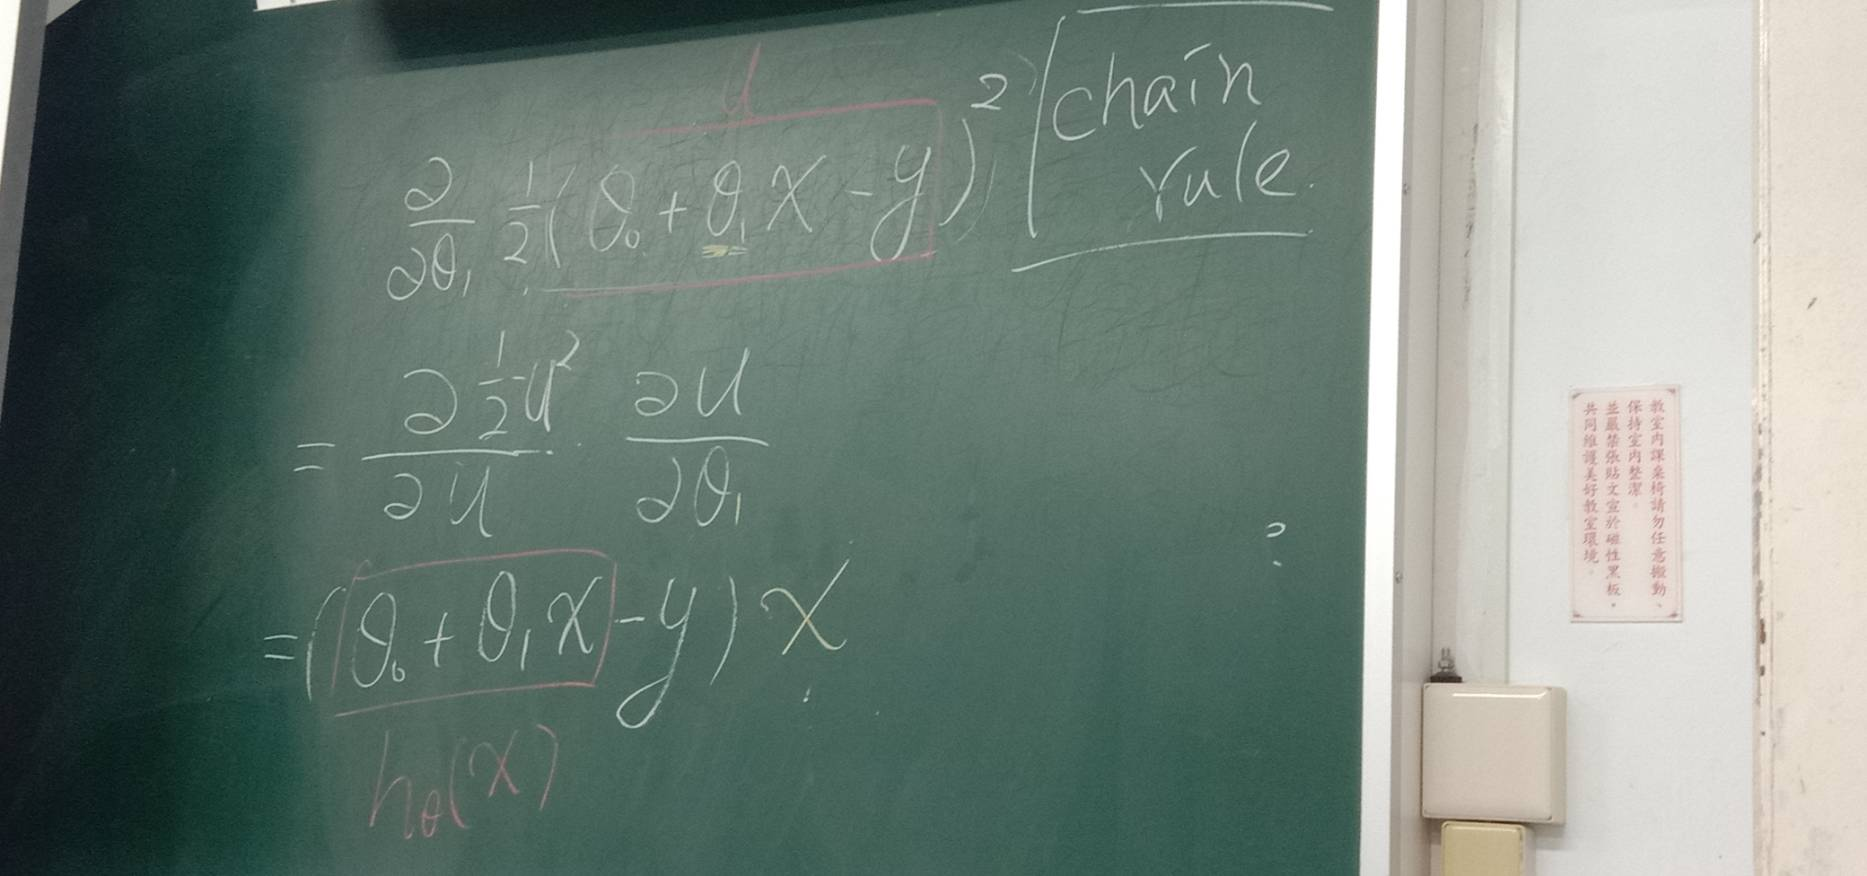 u
∂/∂θ₁ 1/2(θ₀+θ₁x-y)²
chain
rule.
= ∂ 1/2 u²/∂u · ∂u/∂θ₁
=(θ₀+θ₁x-y)x
hθ(x)
?
教室內課桌椅請勿任意搬動、
保持室內整潔。
並嚴禁張貼文宣於磁性黑板，
共同維護美好教室環境。